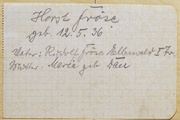 Horst Fröse
geb. 12.5.36
Vater: Rudolf Fröse Ellerwald I Tr.
Mutter: Maria geb